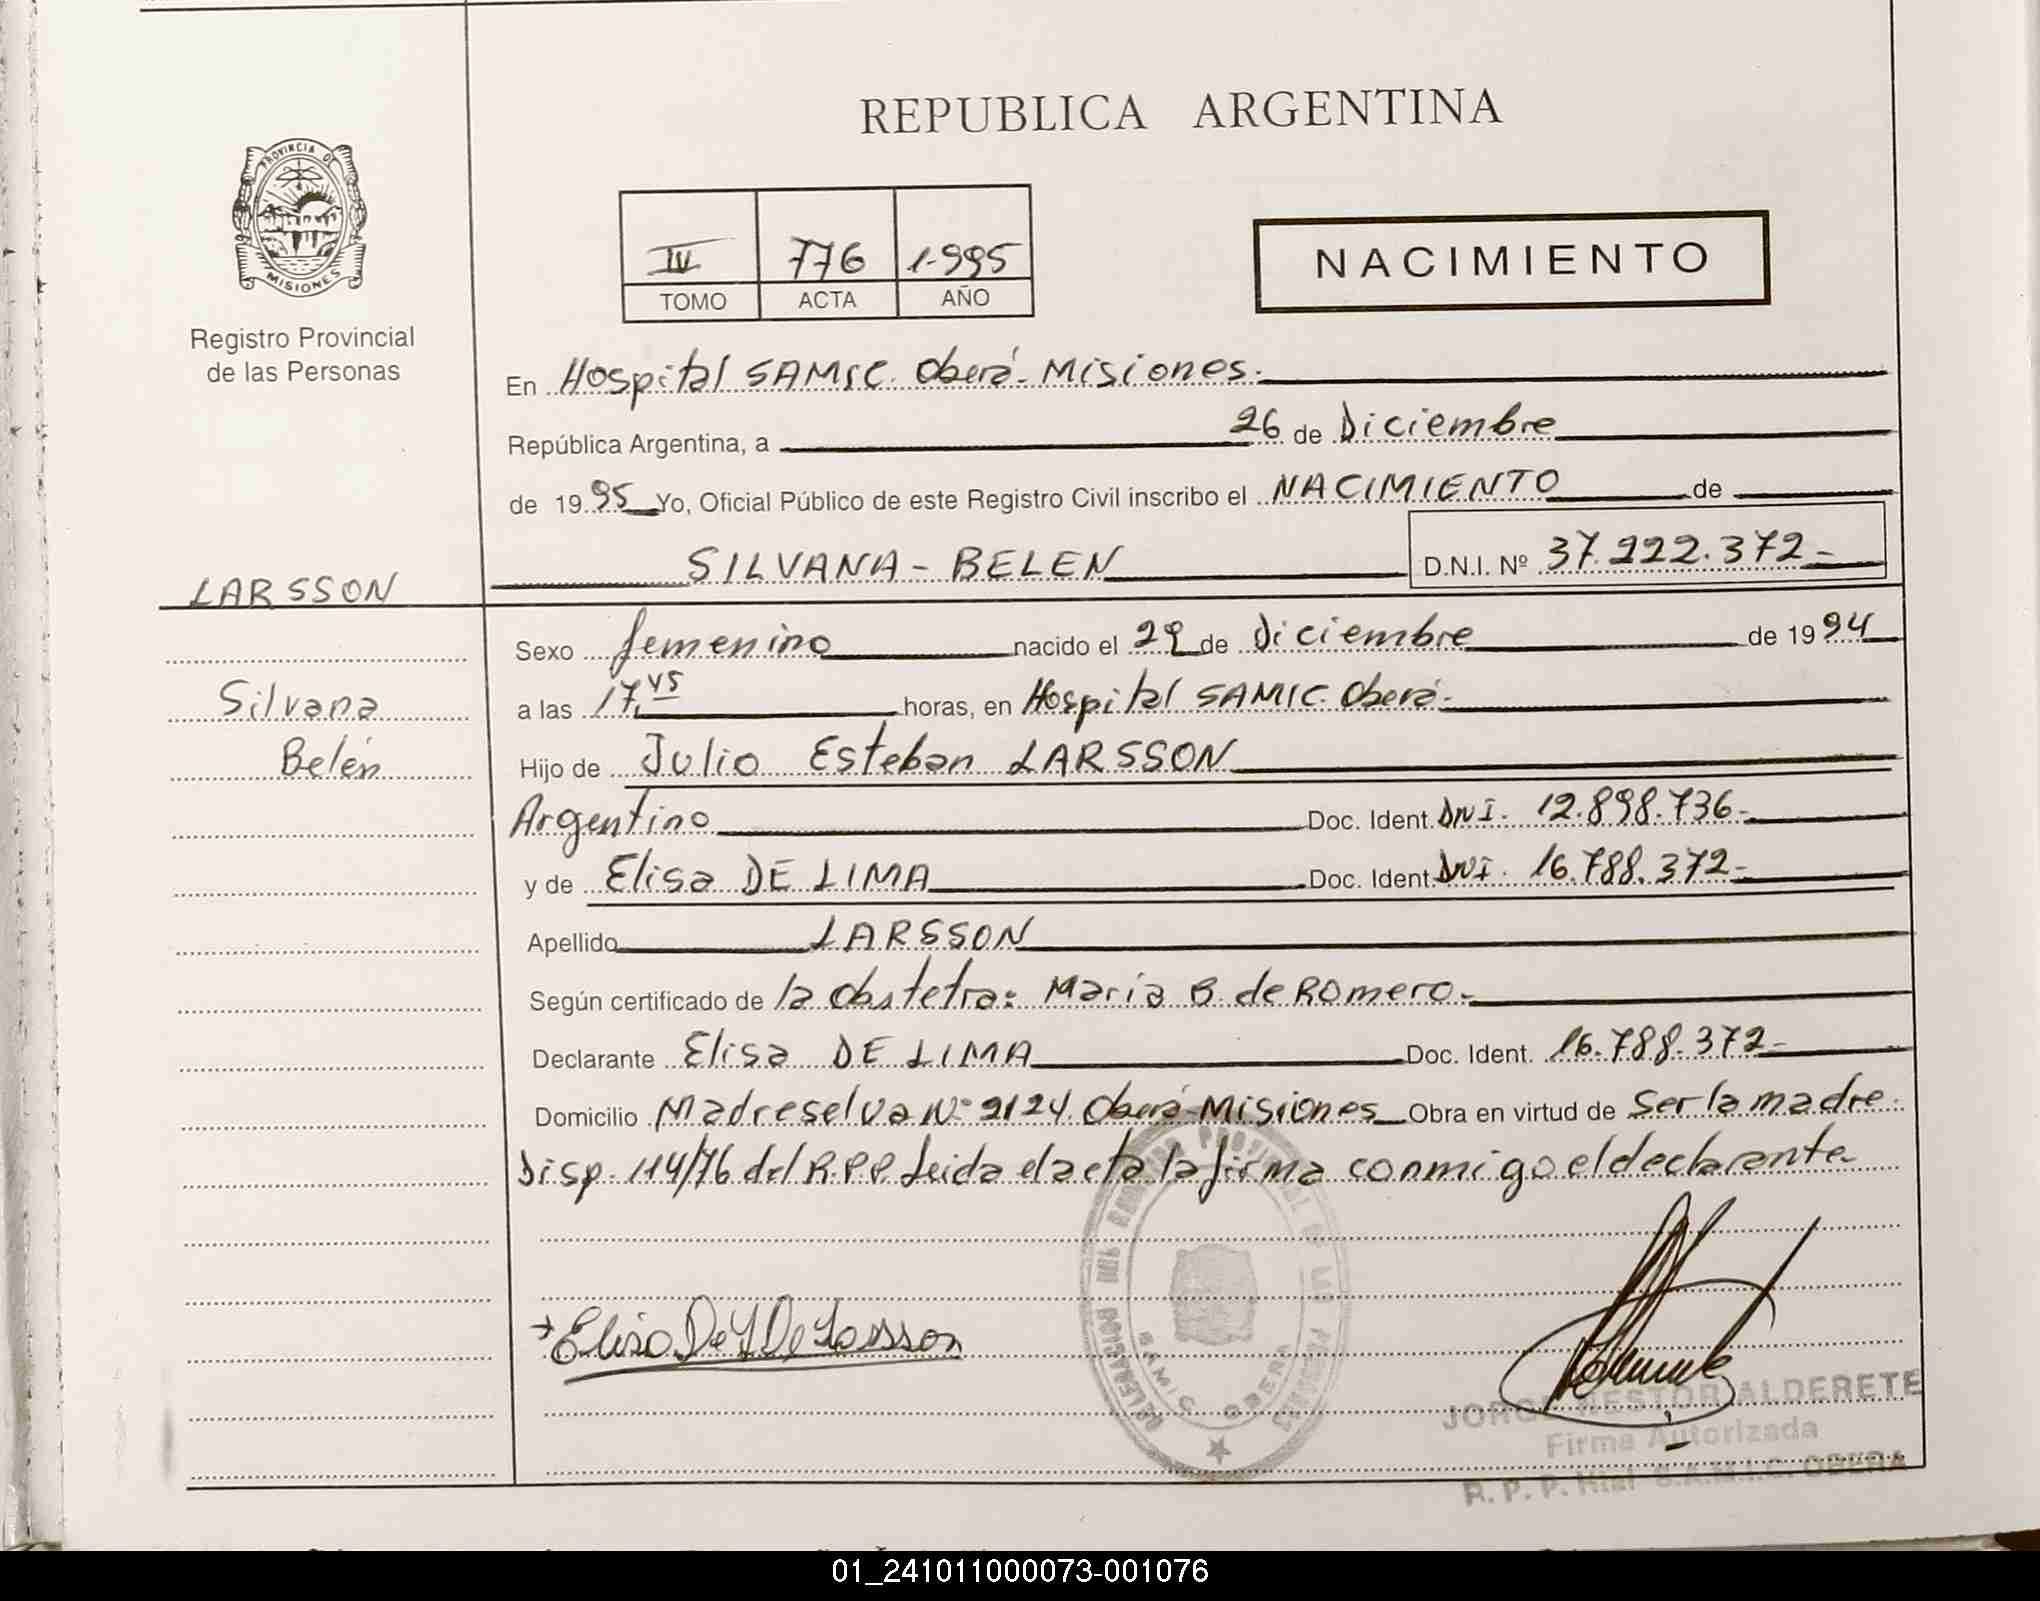 REPUBLICA ARGENTINA
PROVINCIA DE
MISIONES
Registro Provincial
de las Personas
IV 776 1.995
TOMO ACTA AÑO
NACIMIENTO
En Hospital SAMIC. Oberá- Misiones.
República Argentina, a 26 de Diciembre
de 1995 Yo, Oficial Público de este Registro Civil inscribo el NACIMIENTO de
SILVANA - BELEN D.N.I. Nº 37.222.372-
LARSSON
Silvana
Belén
Sexo femenino nacido el 29 de Diciembre de 1994
a las 17,45 horas, en Hospital SAMIC. Oberá-
Hijo de Julio Esteban LARSSON
Argentino Doc. Ident. DNI. 12.898.736-
y de Elisa DE LIMA Doc. Ident. DNI. 16.788.372-
Apellido LARSSON
Según certificado de la obstetra: Maria B. de Romero.-
Declarante Elisa DE LIMA Doc. Ident. 16.788.372-
Domicilio Madreselva Nº 2124. Oberá-Misiones Obra en virtud de ser la madre.
Disp. 114/76 del R.P.P. Leida el acta la firma conmigo el declarante
DELEGACION DEL REGISTRO PROVINCIAL DE LAS PERSONAS
SAMIC OBERA
Elisa De L De Larsson
JORGE NESTOR ALDERETE
Firma Autorizada
R. P. P. Htal S.A.M.I.C. OBERA
01_241011000073-001076